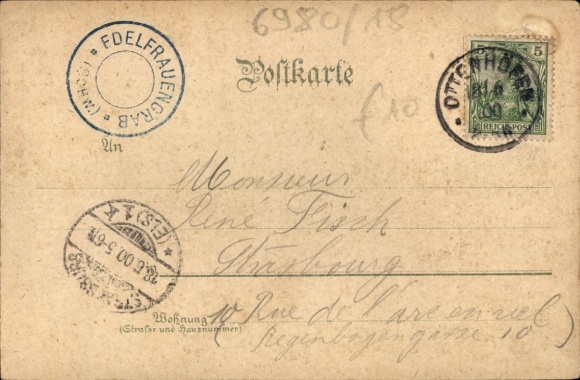 6980/18
* EDELFRAUENGRAB * (WHOS)
Postkarte
5
OTTENHÖFEN
00
REICHSPOST
£10
An
Monsieur
René Fisch
Strasbourg
STRASSBURG * (ELS) 1
18.6.00 5-6N
Wohnung
(Straße und Hausnummer)
10 Rue de l'arc en ciel
Regenbogengasse 10